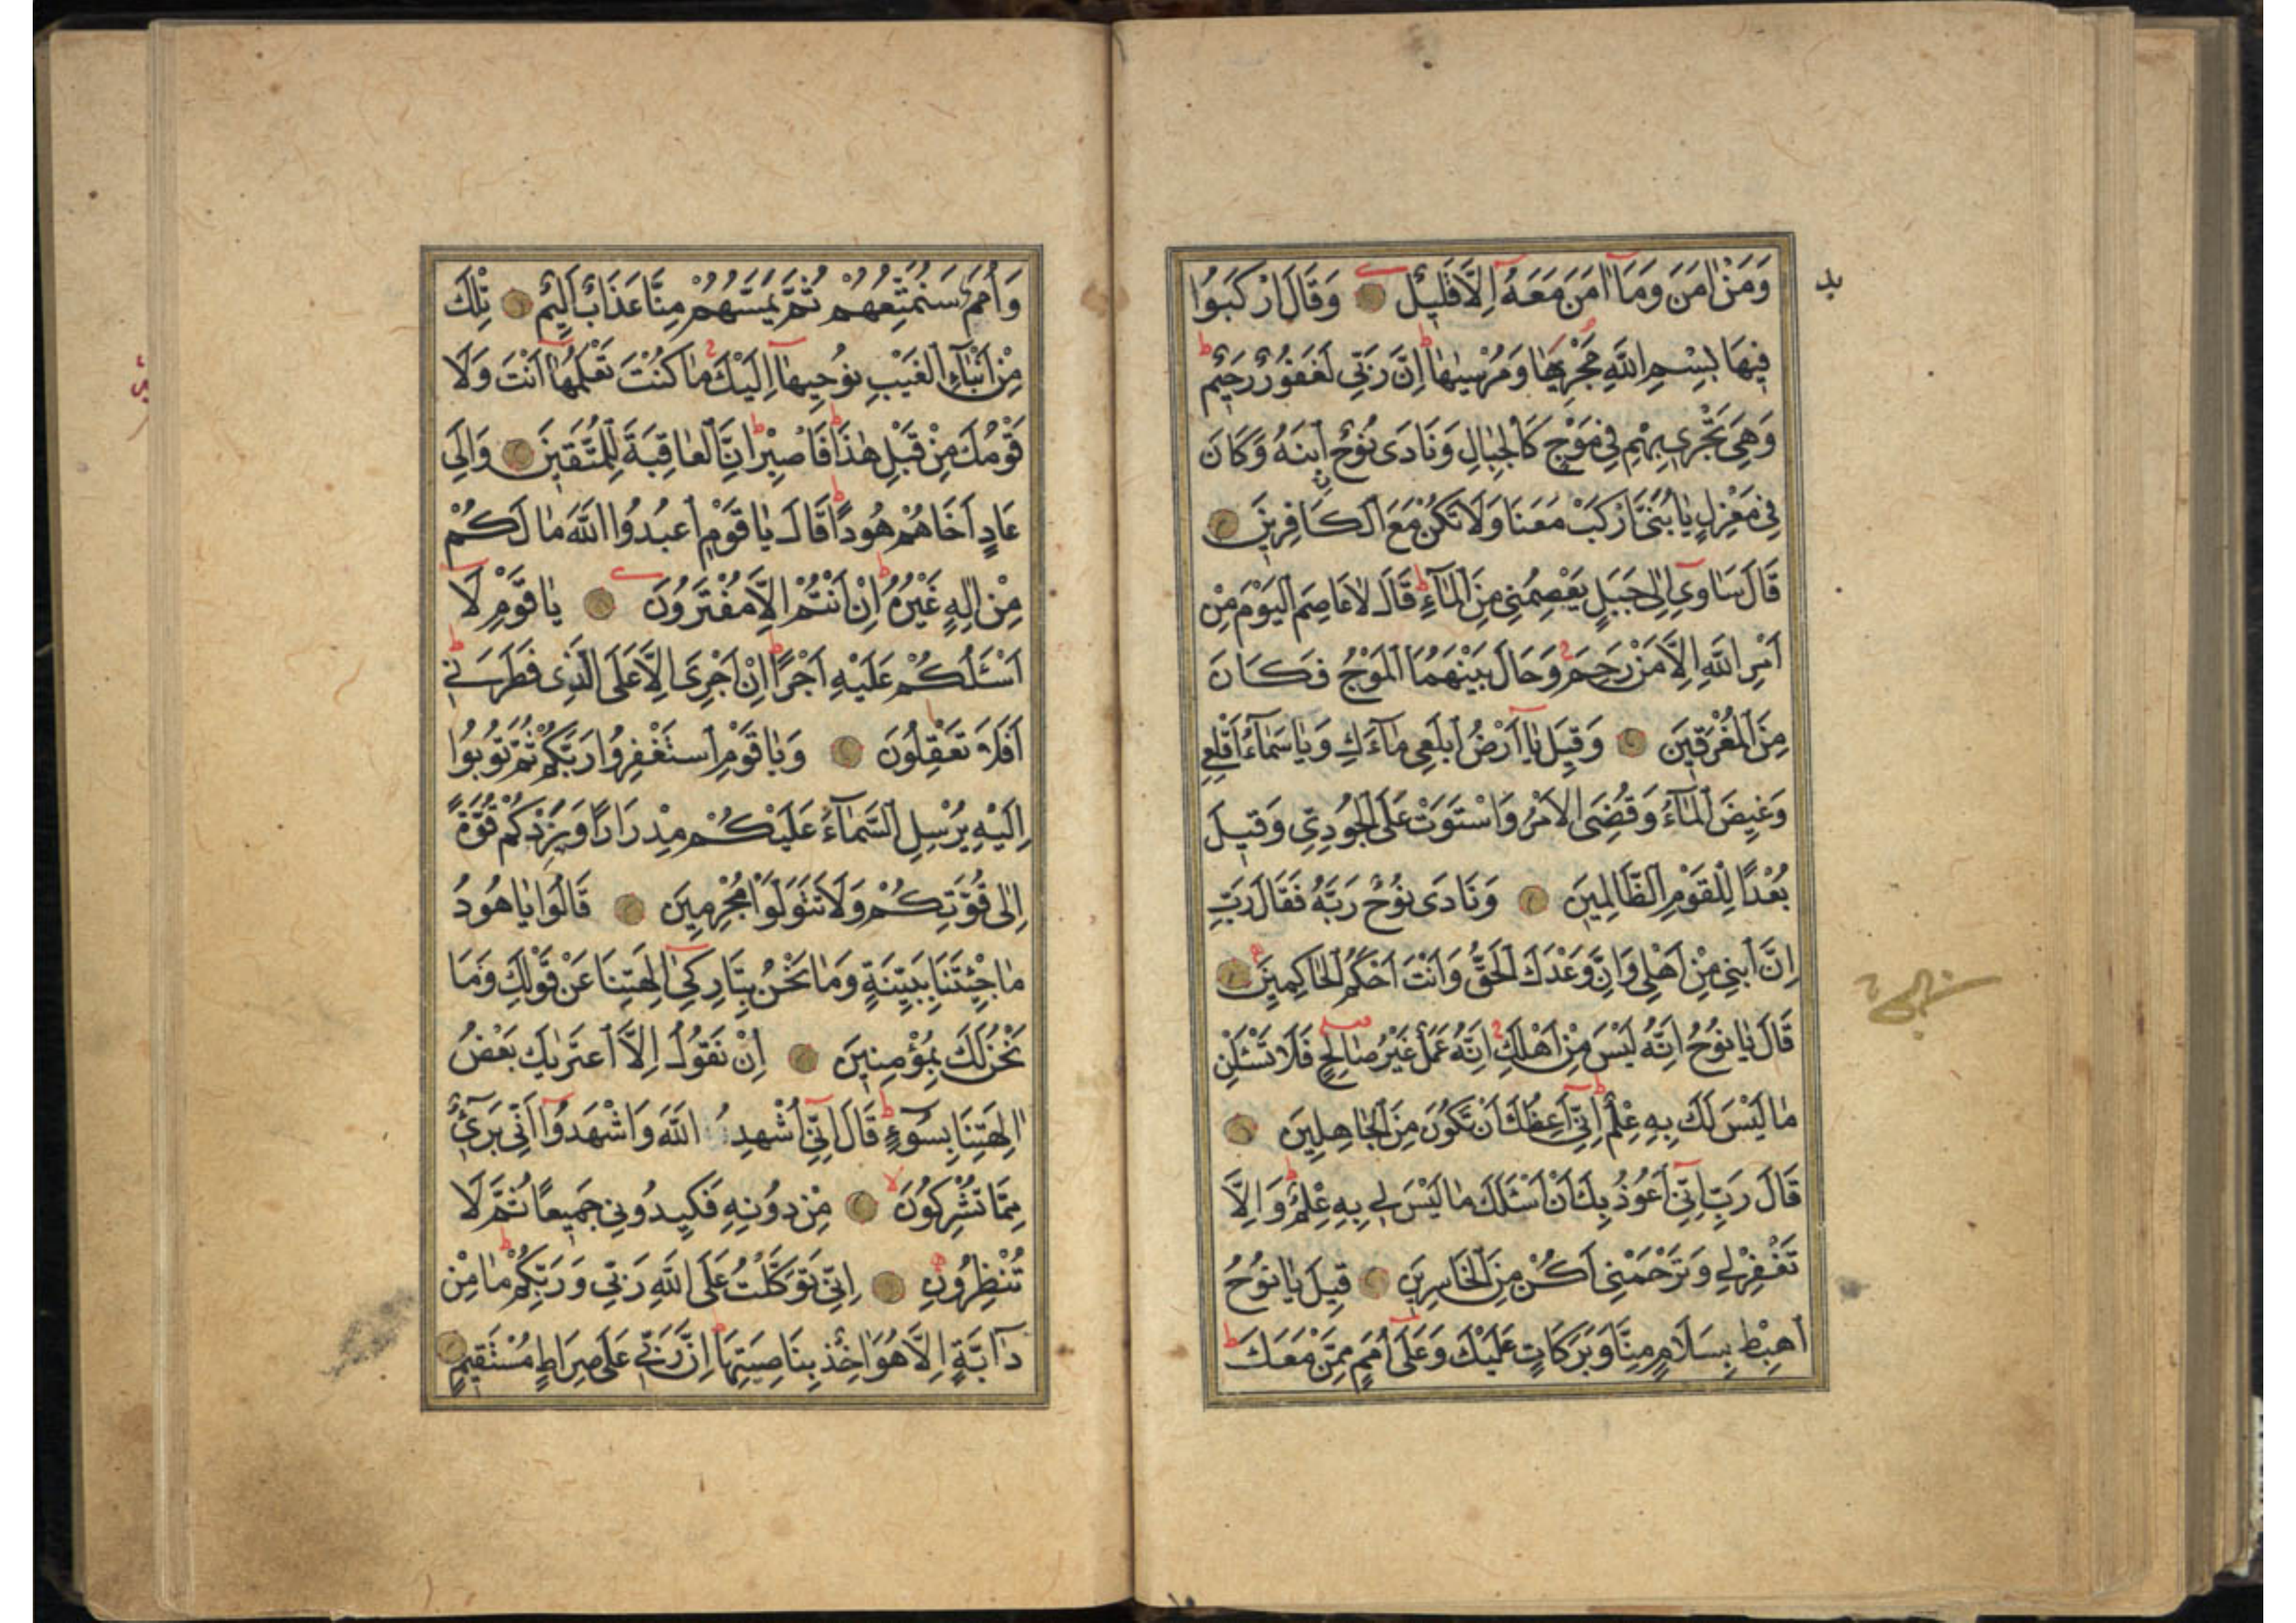 وَمَنْ اٰمَنَ وَمَآ اٰمَنَ مَعَهُٓ اِلَّا قَلِيلٌ وَقَالَ ارْكَبُوا
فِيهَا بِسْمِ اللّٰهِ مَجْرٰۭيهَا وَمُرْسٰيهَا اِنَّ رَبِّى لَغَفُورٌ رَحِيمٌ
وَهِىَ تَجْرِى بِهِمْ فِى مَوْجٍ كَالْجِبَالِ وَنَادَى نُوحٌ ابْنَهُ وَكَانَ
فِى مَعْزِلٍ يَا بُنَىَّ ارْكَبْ مَعَنَا وَلَا تَكُنْ مَعَ الْكَافِرِينَ
قَالَ سَاٰوِىٓ اِلٰى جَبَلٍ يَعْصِمُنِى مِنَ الْمَآءِ قَالَ لَا عَاصِمَ الْيَوْمَ مِنْ
اَمْرِ اللّٰهِ اِلَّا مَنْ رَحِمَ وَحَالَ بَيْنَهُمَا الْمَوْجُ فَكَانَ
مِنَ الْمُغْرَقِينَ وَقِيلَ يَآ اَرْضُ ابْلَعِى مَآءَكِ وَيَا سَمَآءُ اَقْلِعِى
وَغِيضَ الْمَآءُ وَقُضِىَ الْاَمْرُ وَاسْتَوَتْ عَلَى الْجُودِىِّ وَقِيلَ
بُعْدًا لِلْقَوْمِ الظَّالِمِينَ وَنَادَى نُوحٌ رَبَّهُ فَقَالَ رَبِّ
اِنَّ ابْنِى مِنْ اَهْلِى وَاِنَّ وَعْدَكَ الْحَقُّ وَاَنْتَ اَحْكَمُ الْحَاكِمِينَ
قَالَ يَا نُوحُ اِنَّهُ لَيْسَ مِنْ اَهْلِكَ اِنَّهُ عَمَلٌ غَيْرُ صَالِحٍ فَلَا تَسْـَٔلْنِ
مَا لَيْسَ لَكَ بِهِ عِلْمٌ اِنِّىٓ اَعِظُكَ اَنْ تَكُونَ مِنَ الْجَاهِلِينَ
قَالَ رَبِّ اِنِّىٓ اَعُوذُ بِكَ اَنْ اَسْـَٔلَكَ مَا لَيْسَ لِى بِهِ عِلْمٌ وَاِلَّا
تَغْفِرْ لِى وَتَرْحَمْنِى اَكُنْ مِنَ الْخَاسِرِينَ قِيلَ يَا نُوحُ
اهْبِطْ بِسَلَامٍ مِنَّا وَبَرَكَاتٍ عَلَيْكَ وَعَلٰٓى اُمَمٍ مِمَّنْ مَعَكَ
وَاُمَمٌ سَنُمَتِّعُهُمْ ثُمَّ يَمَسُّهُمْ مِنَّا عَذَابٌ اَلِيمٌ تِلْكَ
مِنْ اَنْبَآءِ الْغَيْبِ نُوحِيهَآ اِلَيْكَ مَا كُنْتَ تَعْلَمُهَآ اَنْتَ وَلَا
قَوْمُكَ مِنْ قَبْلِ هٰذَا فَاصْبِرْ اِنَّ الْعَاقِبَةَ لِلْمُتَّقِينَ وَاِلَى
عَادٍ اَخَاهُمْ هُودًا قَالَ يَا قَوْمِ اعْبُدُوا اللّٰهَ مَا لَكُمْ
مِنْ اِلٰهٍ غَيْرُهُ اِنْ اَنْتُمْ اِلَّا مُفْتَرُونَ يَا قَوْمِ لَآ
اَسْـَٔلُكُمْ عَلَيْهِ اَجْرًا اِنْ اَجْرِىَ اِلَّا عَلَى الَّذِى فَطَرَنِى
اَفَلَا تَعْقِلُونَ وَيَا قَوْمِ اسْتَغْفِرُوا رَبَّكُمْ ثُمَّ تُوبُوا
اِلَيْهِ يُرْسِلِ السَّمَآءَ عَلَيْكُمْ مِدْرَارًا وَيَزِدْكُمْ قُوَّةً
اِلٰى قُوَّتِكُمْ وَلَا تَتَوَلَّوْا مُجْرِمِينَ قَالُوا يَا هُودُ
مَا جِئْتَنَا بِبَيِّنَةٍ وَمَا نَحْنُ بِتَارِكِىٓ اٰلِهَتِنَا عَنْ قَوْلِكَ وَمَا
نَحْنُ لَكَ بِمُؤْمِنِينَ اِنْ نَقُولُ اِلَّا اعْتَرٰيكَ بَعْضُ
اٰلِهَتِنَا بِسُوٓءٍ قَالَ اِنِّىٓ اُشْهِدُ اللّٰهَ وَاشْهَدُوٓا اَنِّى بَرِىٓءٌ
مِمَّا تُشْرِكُونَ مِنْ دُونِهِ فَكِيدُونِى جَمِيعًا ثُمَّ لَا
تُنْظِرُونِ اِنِّى تَوَكَّلْتُ عَلَى اللّٰهِ رَبِّى وَرَبِّكُمْ مَا مِنْ
دَآبَّةٍ اِلَّا هُوَ اٰخِذٌ بِنَاصِيَتِهَا اِنَّ رَبِّى عَلٰى صِرَاطٍ مُسْتَقِيمٍ